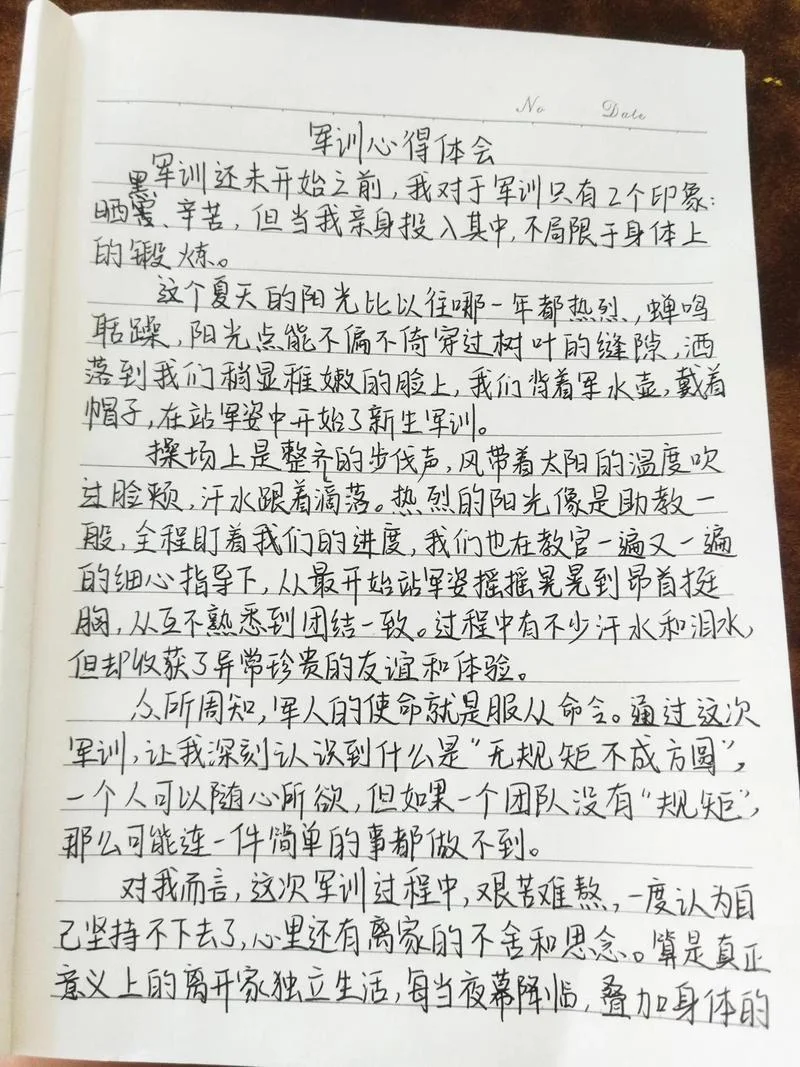 No Date
军训心得体会
军训还未开始之前，我对于军训只有2个印象：
晒黑、辛苦，但当我亲身投入其中，不局限于身体上
的锻炼。
这个夏天的阳光比以往哪一年都热烈，蝉鸣
聒躁，阳光点能不偏不倚穿过树叶的缝隙，洒
落到我们稍显稚嫩的脸上，我们背着军水壶，戴着
帽子，在站军姿中开始了新生军训。
操场上是整齐的步伐声，风带着太阳的温度吹
过脸颊，汗水跟着滴落。热烈的阳光像是助教一
般，全程盯着我们的进度，我们也在教官一遍又一遍
的细心指导下，从最开始站军姿摇摇晃晃到昂首挺
胸，从互不熟悉到团结一致。过程中有不少汗水和泪水，
但却收获了异常珍贵的友谊和体验。
众所周知，军人的使命就是服从命令。通过这次
军训，让我深刻认识到什么是“无规矩不成方圆”，
一个人可以随心所欲，但如果一个团队没有“规矩”，
那么可能连一件简单的事都做不到。
对我而言，这次军训过程中，艰苦难熬，一度认为自
己坚持不下去了，心里还有离家的不舍和思念。算是真正
意义上的离开家独立生活，每当夜幕降临，叠加身体的